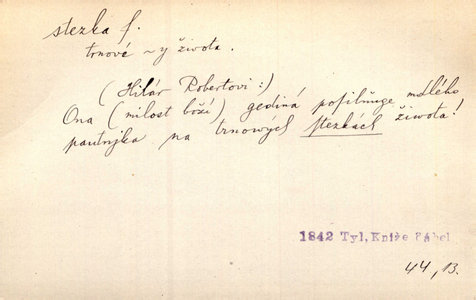 stezka f.
trnové ~y života.
(Hilár Robertovi:)
Ona (milost boží) gediná posilňuge mdlého
pautnjka na trnowých stezkách žiwota!
1842 Tyl, Kníže Bábel
44, 13.